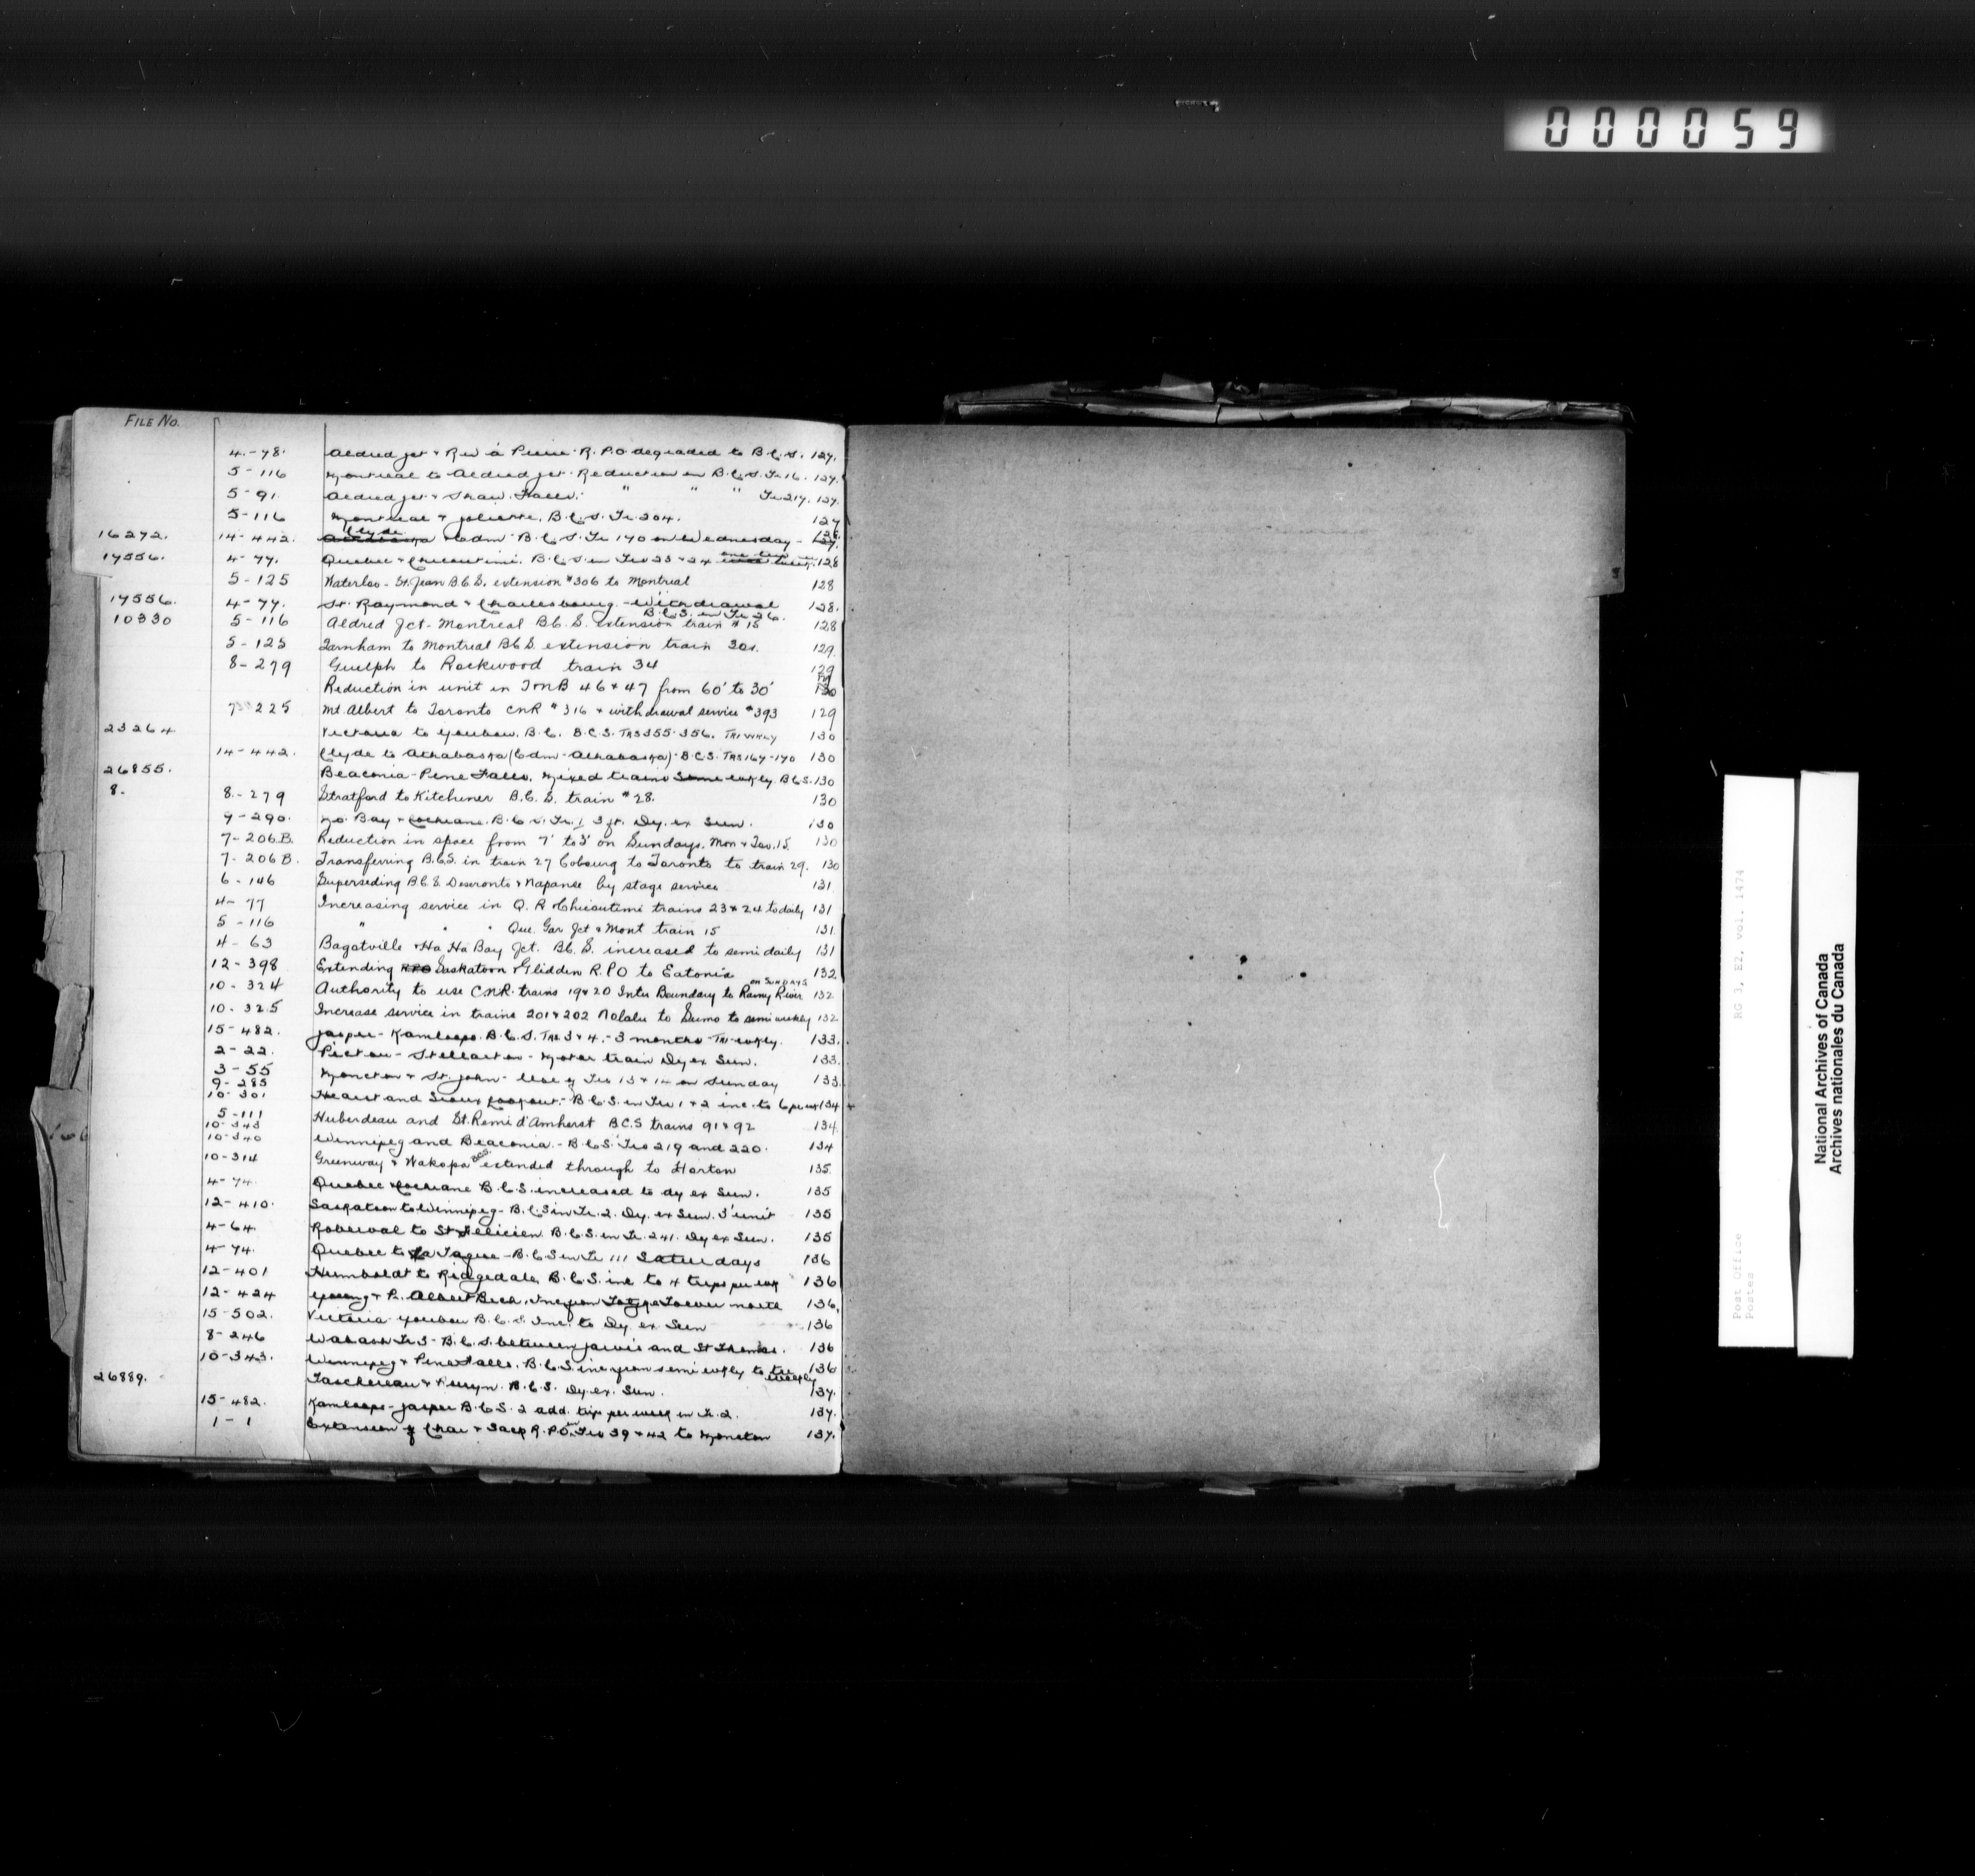 000059
FILE NO.
4-78. Aldred jct & Riv à Pierre R.P.O degraded to B.C.S. 127.
5-116 Montreal to Aldred jct. Reduction in B.C.S. Tr 16. 127.
5-91. Aldred jct & Shaw. Falls. " " " Tr 217. 127.
5-116 Montreal & Joliette. B.C.S. Tr. 204. 127
Clyde
16272. 14-442. Athabaska & Edm - B.C.S. Tr 170 on Wednesday -
17556. 4-77. Quebec & Chicoutimi. B.C.S. in Trs 23 & 24 128
5-125 Waterloo - St. Jean B.C.S. extension #306 to Montreal 128
17556. 4-77. St. Raymond & Charlesbourg - Withdrawal 128.
B.C.S. in Tr 26.
10330 5-116 Aldred Jct - Montreal B.C.S. extension train # 15 128
5-125 Farnham to Montreal B.C.S. extension train 301. 129.
8-279 Guelph to Rockwood train 34 129
Reduction in unit in T&NB 46 & 47 from 60' to 30'
7 225 Mt. Albert to Toronto CNR # 316 & withdrawal service #393 129
23264 Victoria to Youbou, B.C. B.C.S. TRS 355-356. TRI WKLY 130
14-442. Clyde to Athabaska (Edm - Athabaska) - B.C.S. TRS 167-170 130
26855. Beaconia - Pine Falls, Mixed trains Semi-wkly B.C.S. 130
8. 8-279 Stratford to Kitchener B.C.S. train #28. 130
9-290. No. Bay & Cochrane. B.C.S. Tr. 1 3 ft. Dy. ex Sun. 130
7-206B. Reduction in space from 7' to 3' on Sundays, Mon & Tor. 15. 130
7-206B. Transferring B.C.S. in train 27 Cobourg to Toronto to train 29. 130
6-146 Superseding B.C.S. Deseronto & Napanee by stage service 131
4-77 Increasing service in Q. R & Chicoutimi trains 23 & 24 to daily 131
5-116 " " " Que. Gar Jct & Mont train 15 131.
4-63 Bagotville & Ha Ha Bay Jct. B.C.S. increased to semi daily 131
12-398 Extending RPO Saskatoon & Glidden R.P.O to Eatonia 132
on SUNDAYS
10-324 Authority to use CNR trains 19 & 20 Inter Boundary to Rainy River 132
10-325 Increase service in trains 201 & 202 Nolalu to Sumo to semi weekly 132
15-482. Jasper - Kamloops. B.C.S. TRS. 3 & 4. - 3 months - TRI-wkly. 133.
2-22. Pictou - Stellarton - Motor train Dy ex Sun. 133.
3-55 Moncton & St. John - Use of Trs 13 & 14 on Sunday 133.
9-285
10-301 Hearst and Sioux Lookout - B.C.S. in Trs 1 & 2 inc. to 6 per wk 134
5-111 Huberdeau and St. Remi d'Amherst B.C.S trains 91 & 92 134.
10-343
10-340 Winnipeg and Beaconia - B.C.S. Trs 219 and 220. 134
10-314 Greenway & Wakopa BCS. extended through to Horton 135.
4-74. Quebec & Cochrane B.C.S. increased to dy ex Sun. 135
12-410. Saskatoon to Winnipeg - B.C.S in Tr. 2. Dy. ex Sun. 3' unit 135
4-64 Roberval to St Felicien. B.C.S. in Tr. 241. Dy ex Sun. 135
4-74. Quebec to La Tuque - B.C.S in Tr 111 Saturdays 136
12-401 Humboldt to Ridgedale, B.C.S. inc to 4 trips per wk 136
12-424 Young & P. Albert 136.
15-502. Victoria - Youbou B.C.S. Inc. to Dy. ex Sun 136
8-246 Wabash Tr 3 - B.C.S. between Jarvis and St Thomas. 136
10-343. Winnipeg & Pine Falls. B.C.S. inc from semi wkly to tri weekly 136
26889. Taschereau & Rouyn. B.C.S. Dy. ex. Sun. 137.
15-482. Kamloops - Jasper B.C.S. 2 add. trips per week in Tr. 2. 137.
1-1 Extension of Char & Sack R.P.O. in Trs 39 & 42 to Moncton 137.
RG 3, E2, vol. 1474
Post Office
Postes
National Archives of Canada
Archives nationales du Canada